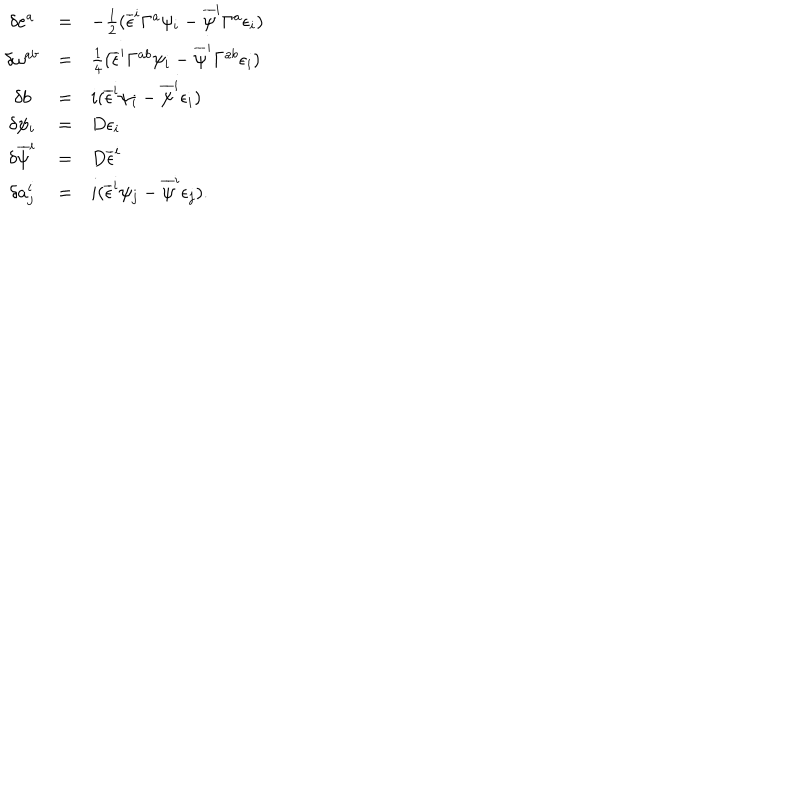 δeᵃ = −½(ϵ̅ⁱΓᵃψᵢ − ψ̅ⁱΓᵃϵᵢ)
δωᵃᵇ = ¼(ϵ̅ⁱΓᵃᵇψᵢ − ψ̅ⁱΓᵃᵇϵᵢ)
δb = i(ϵ̅ⁱψᵢ − ψ̅ⁱϵᵢ)
δψᵢ = Dϵᵢ
δψ̅ⁱ = Dϵ̅ⁱ
δaⁱⱼ = i(ϵ̅ⁱψⱼ − ψ̅ⁱϵⱼ).